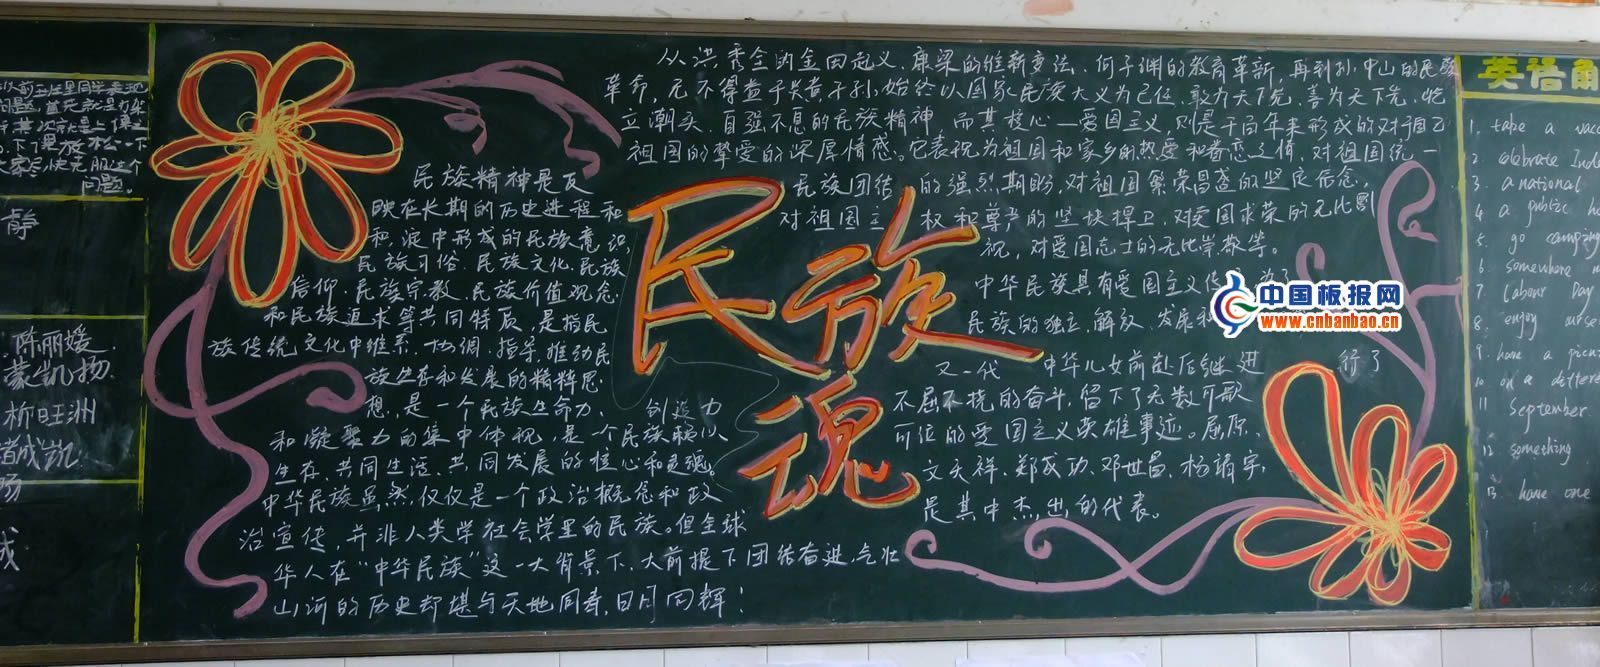 以前
问题
下课放松一下
大家尽快克服这个
问题。
静
陈丽媛
蒙凯扬
柳旺洲
诚凯
扬
成
民族精神是反
映在长期的历史进程和
积淀中形成的民族意识,
民族习俗、民族文化、民族
信仰、民族宗教、民族价值观念
和民族追求等共同特质,是指民
族传统文化中维系、协调、指导、推动民
族生存和发展的精粹思
想,是一个民族生命力、创造力
和凝聚力的集中体现,是一个民族赖以
生存、共同生活、共同发展的核心和灵魂。
中华民族虽然仅仅是一个政治概念和政
治宣传,并非人类学社会学里的民族。但全球
华人在“中华民族”这一大背景下、大前提下团结奋进,气壮
山河的历史却堪与天地同寿,日月同辉!
民族魂
从洪秀全的金田起义、康梁的维新变法、何子渊的教育革新,再到孙中山的民族
革命,无不得益于炎黄子孙始终以国家民族大义为己任,敢为天下先、善为天下先,屹
立潮头、自强不息的民族精神。而其核心—爱国主义,则是千百年来形成的对于自己
祖国的挚爱的深厚情感。它表现为祖国和家乡的热爱和眷恋之情,对祖国统一
民族团结的强烈期盼,对祖国繁荣昌盛的坚定信念,
对祖国主权和尊严的坚决捍卫,对卖国求荣的无比鄙
视,对爱国志士的无比崇敬等。
中华民族具有爱国主义传 为了
民族的独立、解放、发展和
又一代中华儿女前赴后继进行了
不屈不挠的奋斗,留下了无数可歌
可泣的爱国主义英雄事迹。屈原、
文天祥、郑成功、邓世昌、杨靖宇,
是其中杰出的代表。
中国板报网
www.cnbanbao.cn
英语角
1. take a vacc
2. celebrate Inde
3. a national
4. a public ho
5. go camping
6. somewhere
7. Labour Day
8. enjoy
9. have a picn
10. on a differe
11 September
12 something
13. have one